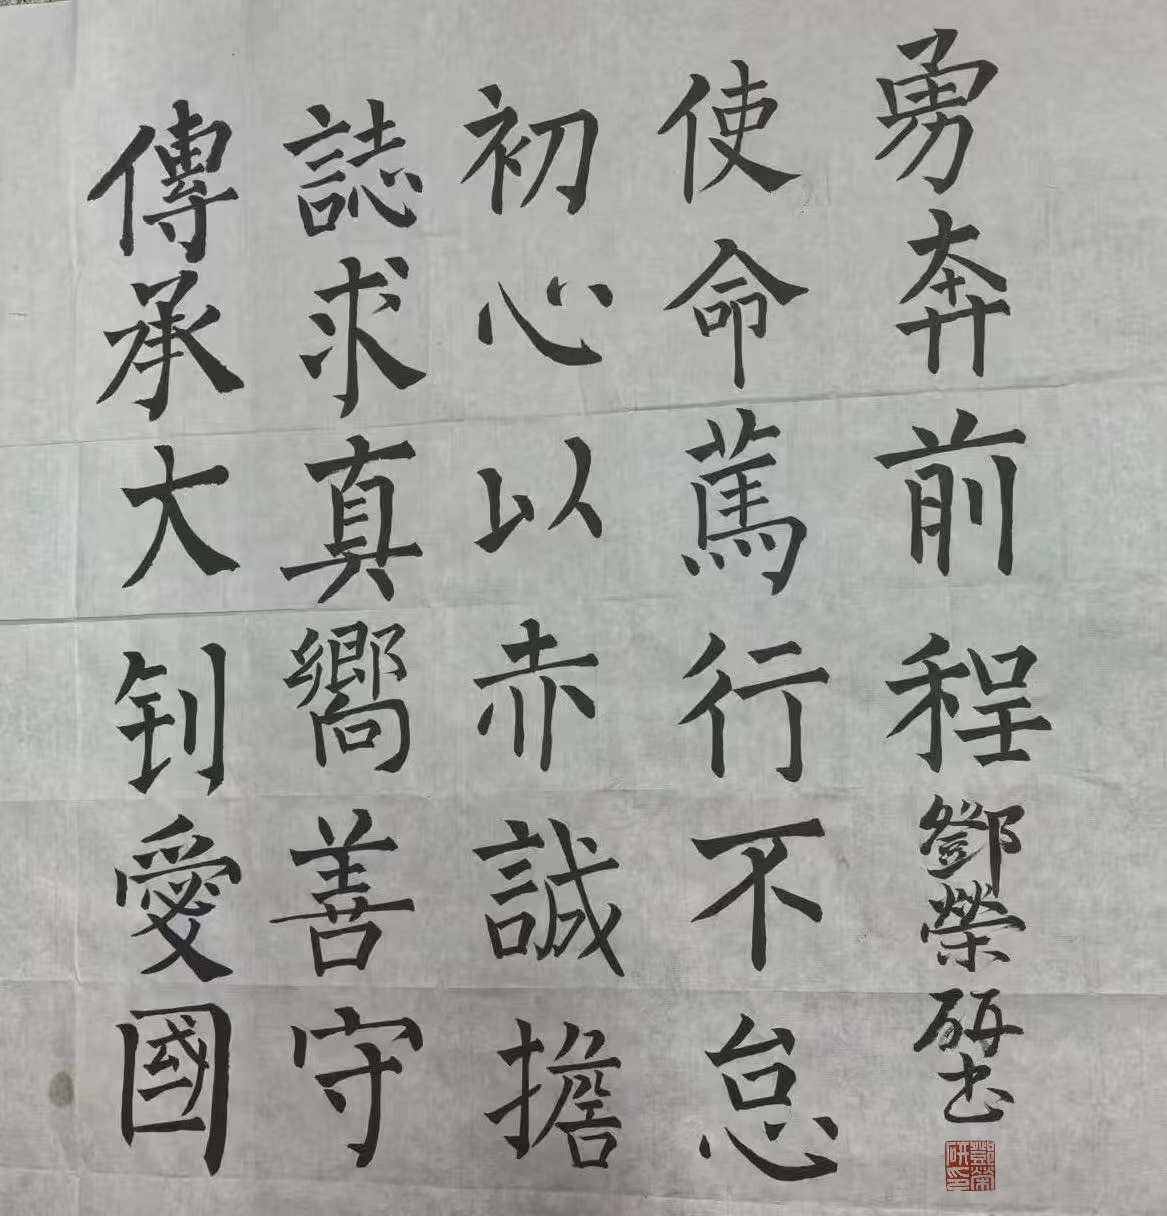 傳承大钊愛國
誌求真嚮善守
初心以赤誠擔
使命篤行不怠
勇奔前程
鄧榮研书
鄧榮研印